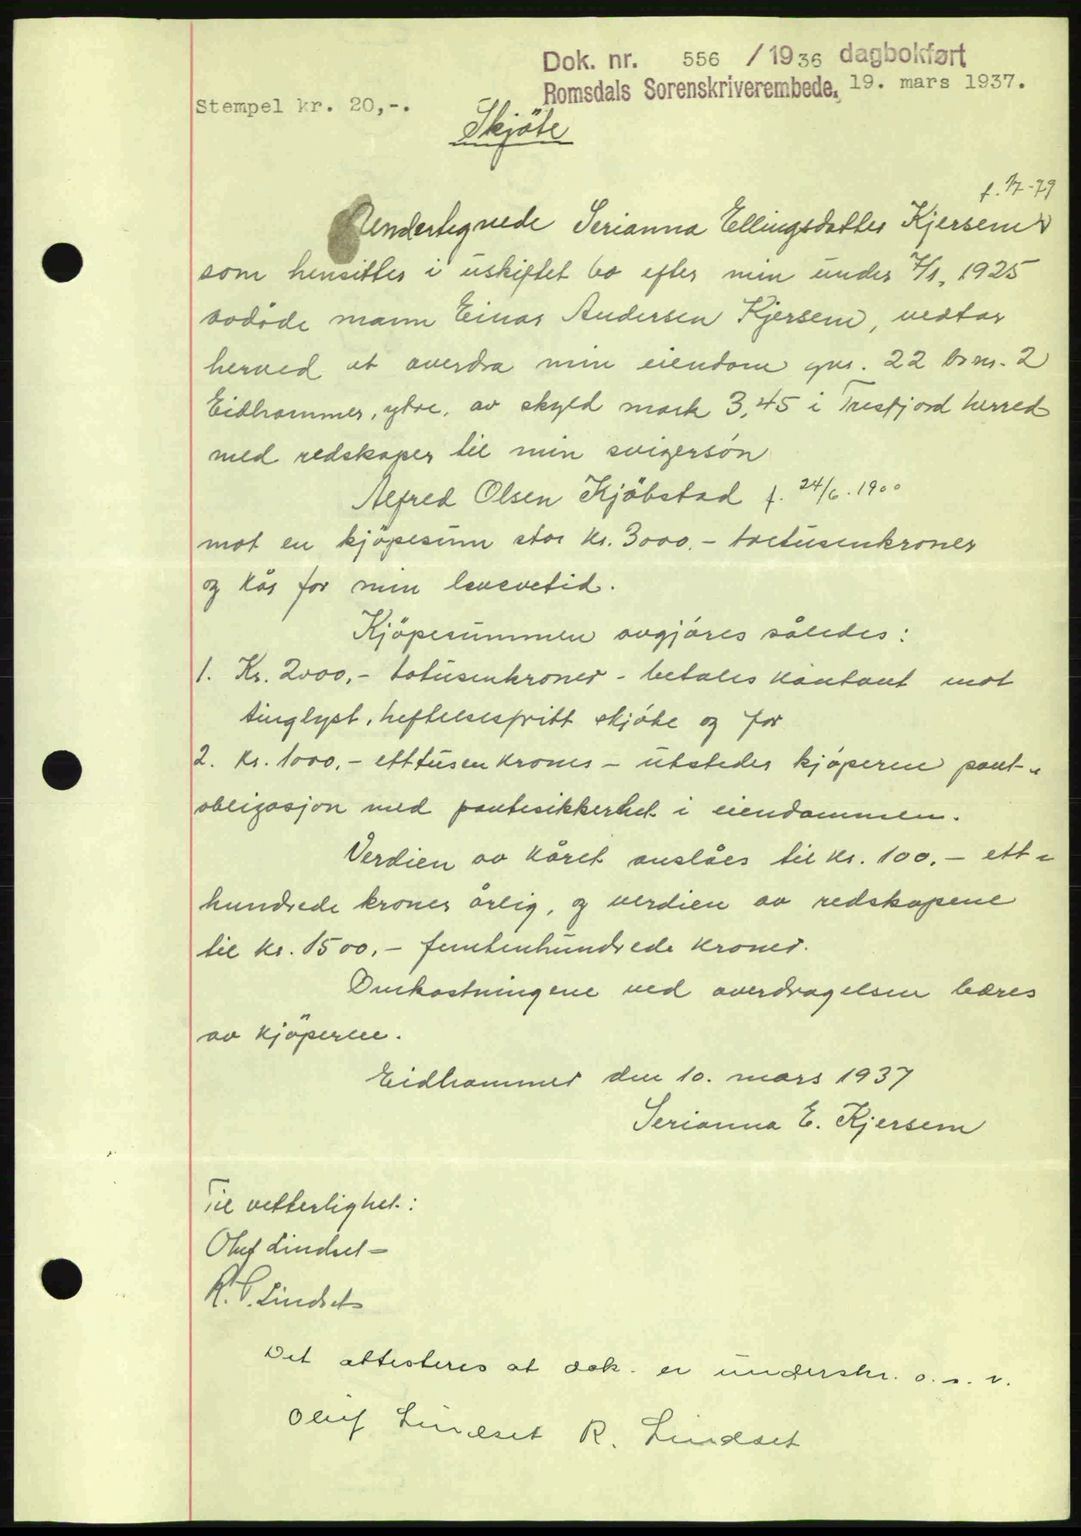 Dok. nr. 556 / 1936 dagbokført
Romsdals Sorenskriverembede, 19. mars 1937.
Stempel kr. 20,-.
Skjöte
Undertegnede Serianna Ellingsdatter Kjersem
som hensitter i uskiftet bo efter min under 7/1, 1925
avdöde mann Einar Andersen Kjersem, vedtar
herved at overdra min eiendom gnr. 22 brnr. 2
Eidhammer, ytre, av skyld mark 3,45 i Tresfjord herred
med redskaper til min svigersön
Alfred Olsen Kjöbstad f. 24/6. 1900
mot en kjöpesum stor kr. 3000.- tretusenkroner
og kår for min levevetid.
Kjöpesummen avgjöres således:
1. Kr. 2000.- totusenkroner - betales kontant mot
tinglyst, heftelsesfritt skjöte og for
2. Kr. 1000.- ettusenkroner - utsteder kjöperen pant-
obligasjon med pantesikkerhet i eiendommen.
Verdien av kåret anslåes til kr. 100.- ett-
hundrede kroner årlig, og verdien av redskapene
til kr. 1500.- femtenhundrede kroner.
Omkostningene ved overdragelsen bæres
av kjöperen.
Eidhammer den 10. mars 1937
Serianna E. Kjersem
Til vitterlighet:
Oluf Lindset
R. Lindset
Det attesteres at dok. er underskr. o. s. v.
Oluf Lindset R. Lindset